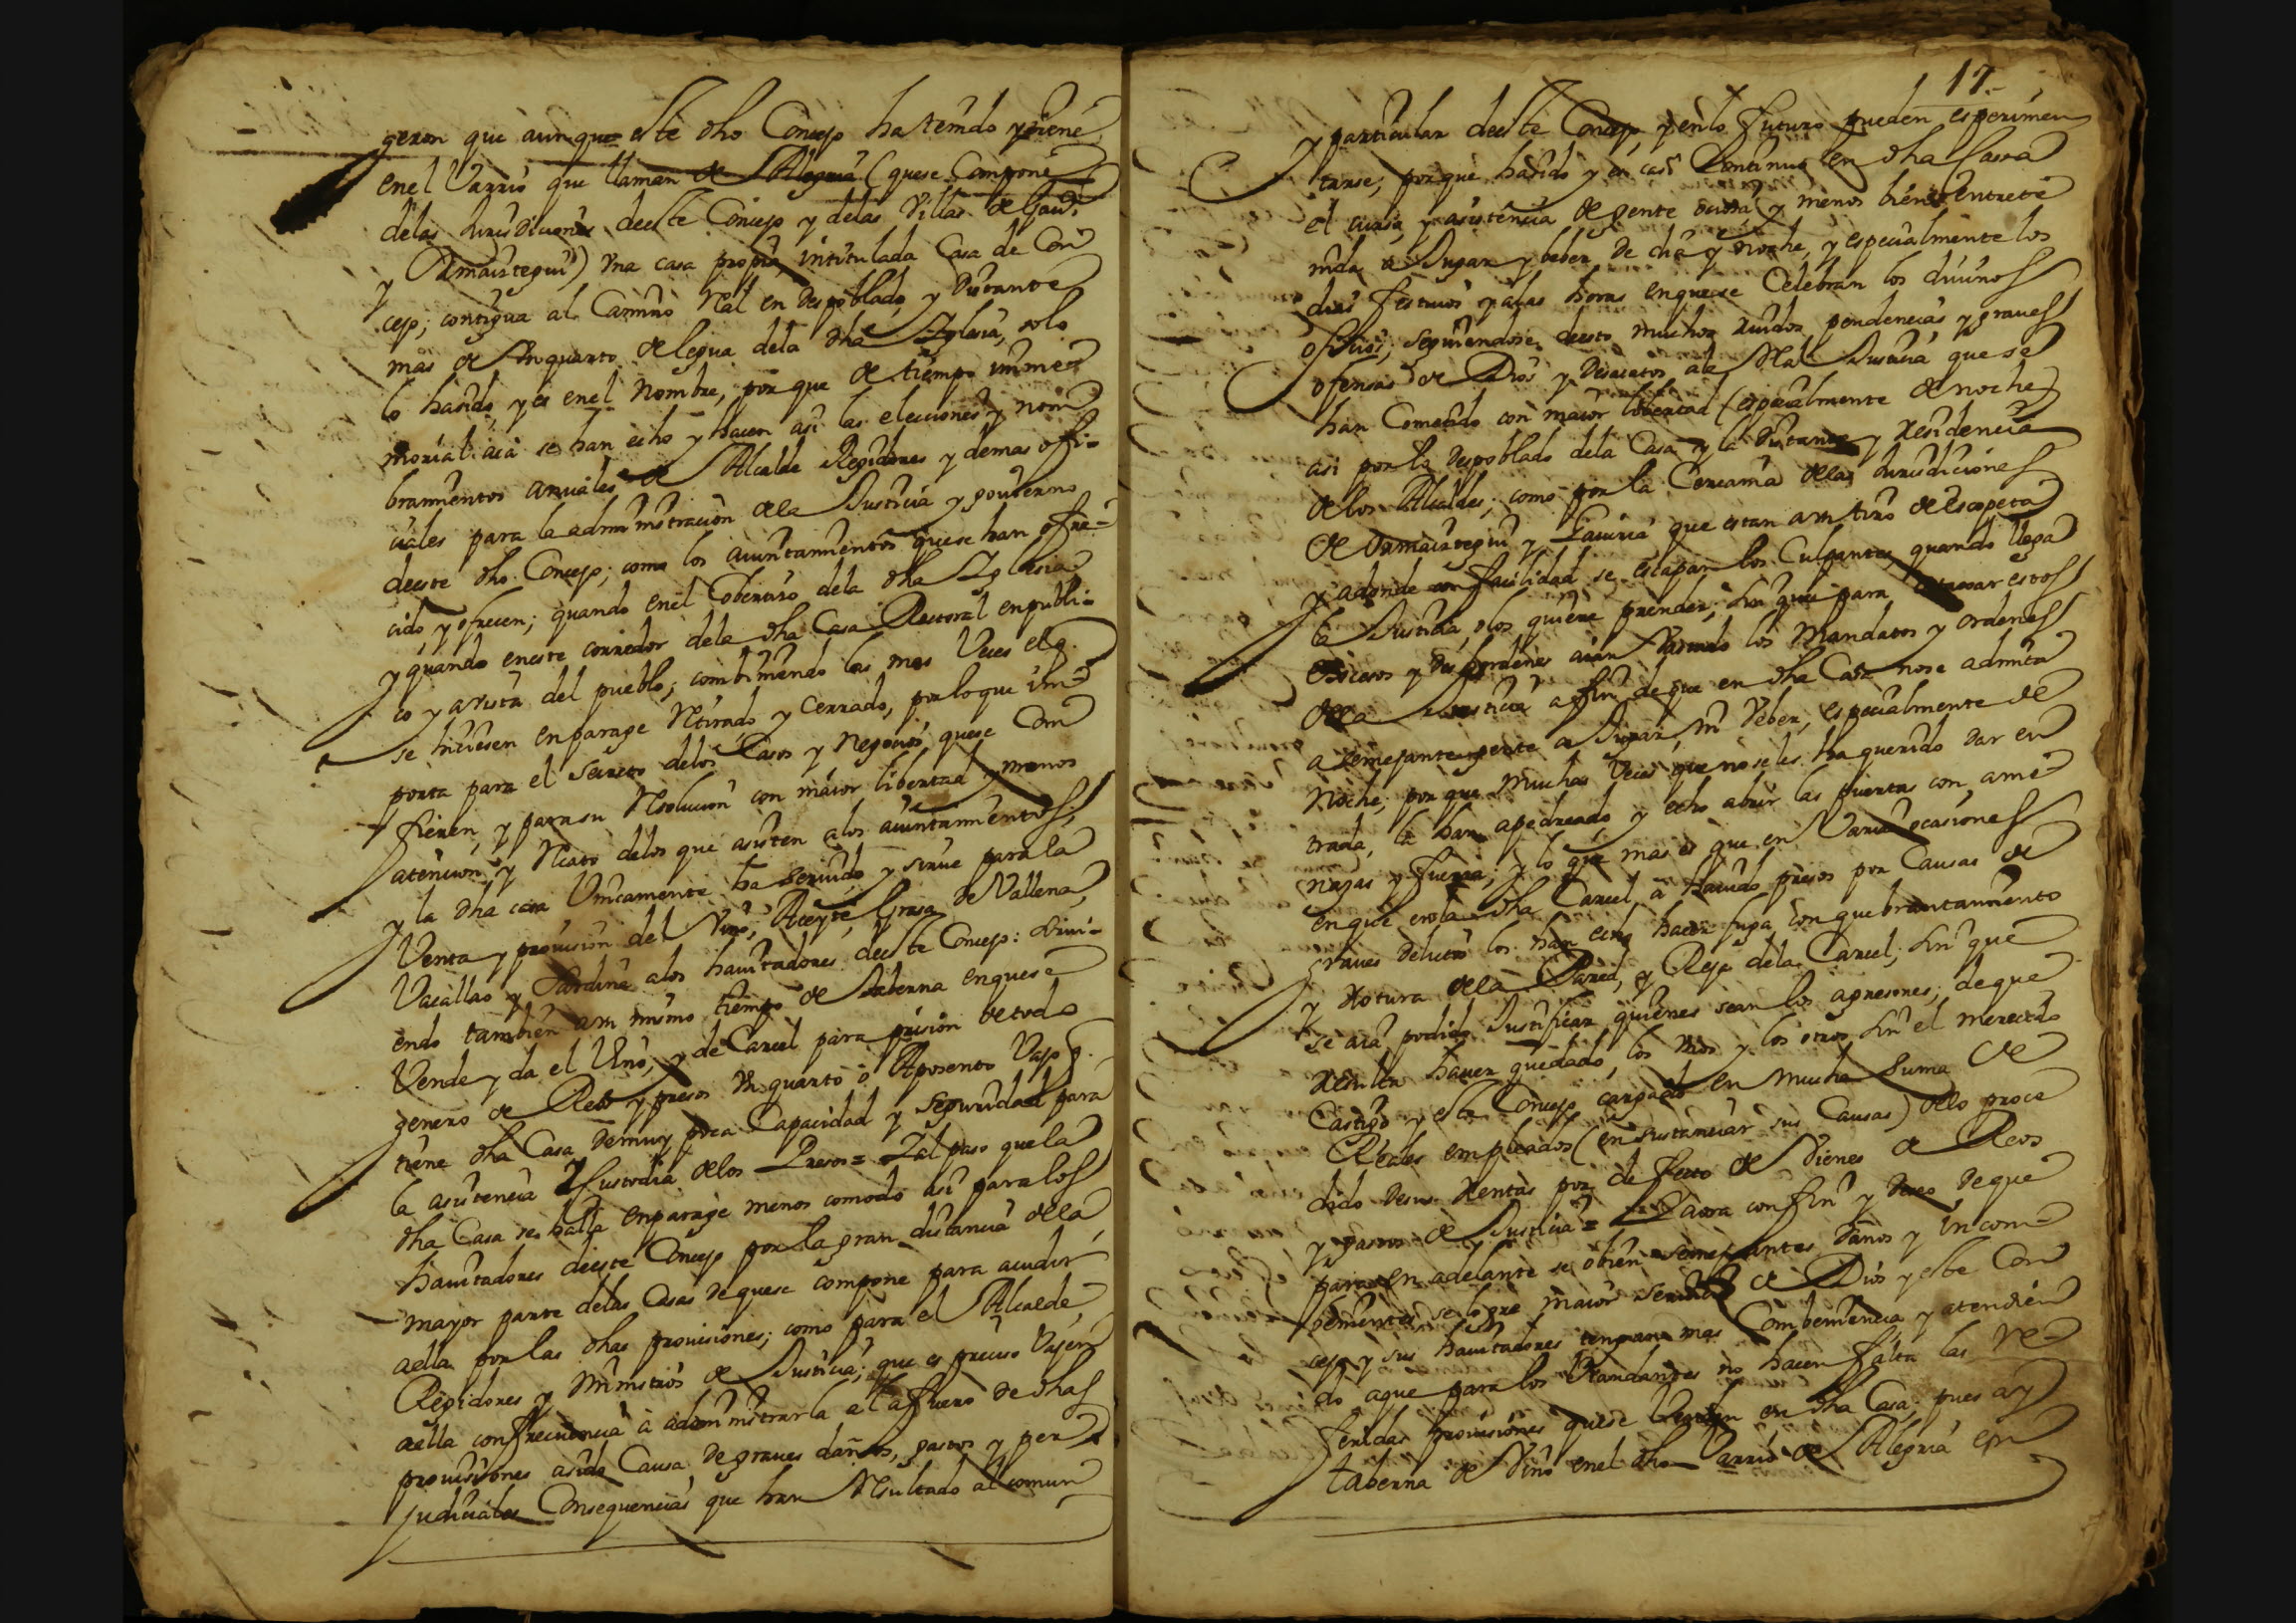 geron que aunque este dho Concejo ha tenido y tiene
en el Varrio que llaman de Alegria (que se Compone
de las Jurisdiciones de este Concejo y de las Villas de Gavi
y Ormaiztegui) vna casa propia, intitulada Casa de Con
cejo; contigua al Camino Rl en despoblado, y distante
mas de vn quarto de legua de la dha Iglesia, solo
lo ha sido y es en el Nombre, por que de tiempo imme
morial acá se han echo y hacen asi las elecciones y nom
bramientos anuales de Alcalde Regidores y demas ofi-
ciales para la administracion de la Justicia y gouierno
de este dho Concejo; como los aiuntamientos que se han ofre-
cido y ofrecen; quando en el Cobertizo de la dha Iglesia
y quando en este corredor de la dha Casa Rectoral en publi-
co y a vista del pueblo; combiniendo las mas Veces el q
se hiciesen en parage Retirado y Cerrado, por lo que im
porta para el secreto de los Casos y Negocios que se Con
fieren, y para su Resolucion con maior libertad y menos
atencion y Recato de los que asisten a los aiuntamientos;
y la dha casa Vnicamente ha seruido y sirue para la
Venta y prouision del Vino, Aceyte, Grasa de Vallena,
Vacallao y Sardina a los hauitadores de este Concejo: Siruí-
endo tambien a un mismo tiempo de Taberna en que se
Vende y da el Vino, y de Carcel para prision de todo
genero de Reos y presos Vn quarto o Aposento Vajo q
tiene dha Casa de muy poca Capacidad y seguridad para
la asistencia y Custodia de los Presos = Y al paso que la
dha Casa se halla en parage menos comodo asi para los
hauitadores de este Concejo por la gran distancia de la
mayor parte de las Casas de que se compone para acudir
a ella por las dhas prouisiones; como para el Alcalde,
Regidores y Ministros de Justicia; que es preciso Vajen
a ella con frecuencia à administrarla al afuero de dhas
prouisiones a sido Causa de graues daños, gastos y per
judiciales Consequencias que han Resultado al comun
17
y particular de este Concejo, y en lo futuro pueden esperimen
tarse; porque ha sido y es casi Continuo en dha Cassa
el curso, y asistencia de gente ociosa y menos bien entrete
nida a Jugar y beber de dia y noche, y especialmente los
dias festiuos y a las horas en que se Celebran los diuinos
ofiçios; seguiendose de esto muchos ruidos pendencias y graues
ofensas de Dios y desacatos a la Rl Justicia que se
han Cometido con maior libertad (especialmente de noche)
asi por lo despoblado de la Casa y la distancia y Residencia
de los Alcaldes; como por la Cercania de las Jurisdiciones
de Ormaiztegui y Gauiria que estan a un tiro de escopeta
y adonde con facilidad se escapan los Culpantes, quando llega
la Justicia, o los quiere prender; sin que para estos
excesos y desordenes aian los Mandatos y ordenes
de la Justicia a fin de que en dha Casa no se admita
a semejante gente a Jugar, ni Veber, especialmente de
Noche; por que muchas Veces que no se les ha querido dar en
trada, la han apedreado, y echo abrir las puertas con ame
nazas y fuerza; y lo que mas es que en Varias ocasiones
en que en la dha Carcel à hauido presos por Causas de
graues delitos los han echo hacer fuga con quebrantamiento
y Rotura de la Pared, y Reja de la Carcel; sin que
se aia podido Justificar quienes sean los agresores; de que
Resulta hauer quedado, los vnos y los otros sin el merecido
Castigo y este Concejo cargado en mucha suma de
Reales empleados (en sustanciar sus Causas) de lo proce
dido de sus Rentas por defecto de Vienes de Reos
y gastos de Justicia = Y aora con fin y deseo de que
para en adelante se obien semejantes daños y incom-
benientes se logre maior seruicio de Dios y este Con
cejo y sus hauitadores tengan mas Combeniencia y atendien
do a que para los Viandantes no hacen falta las re
feridas prouisiones que se Venden en dha Casa, pues ay
taberna de Vino en el dho Varrio de Alegria en